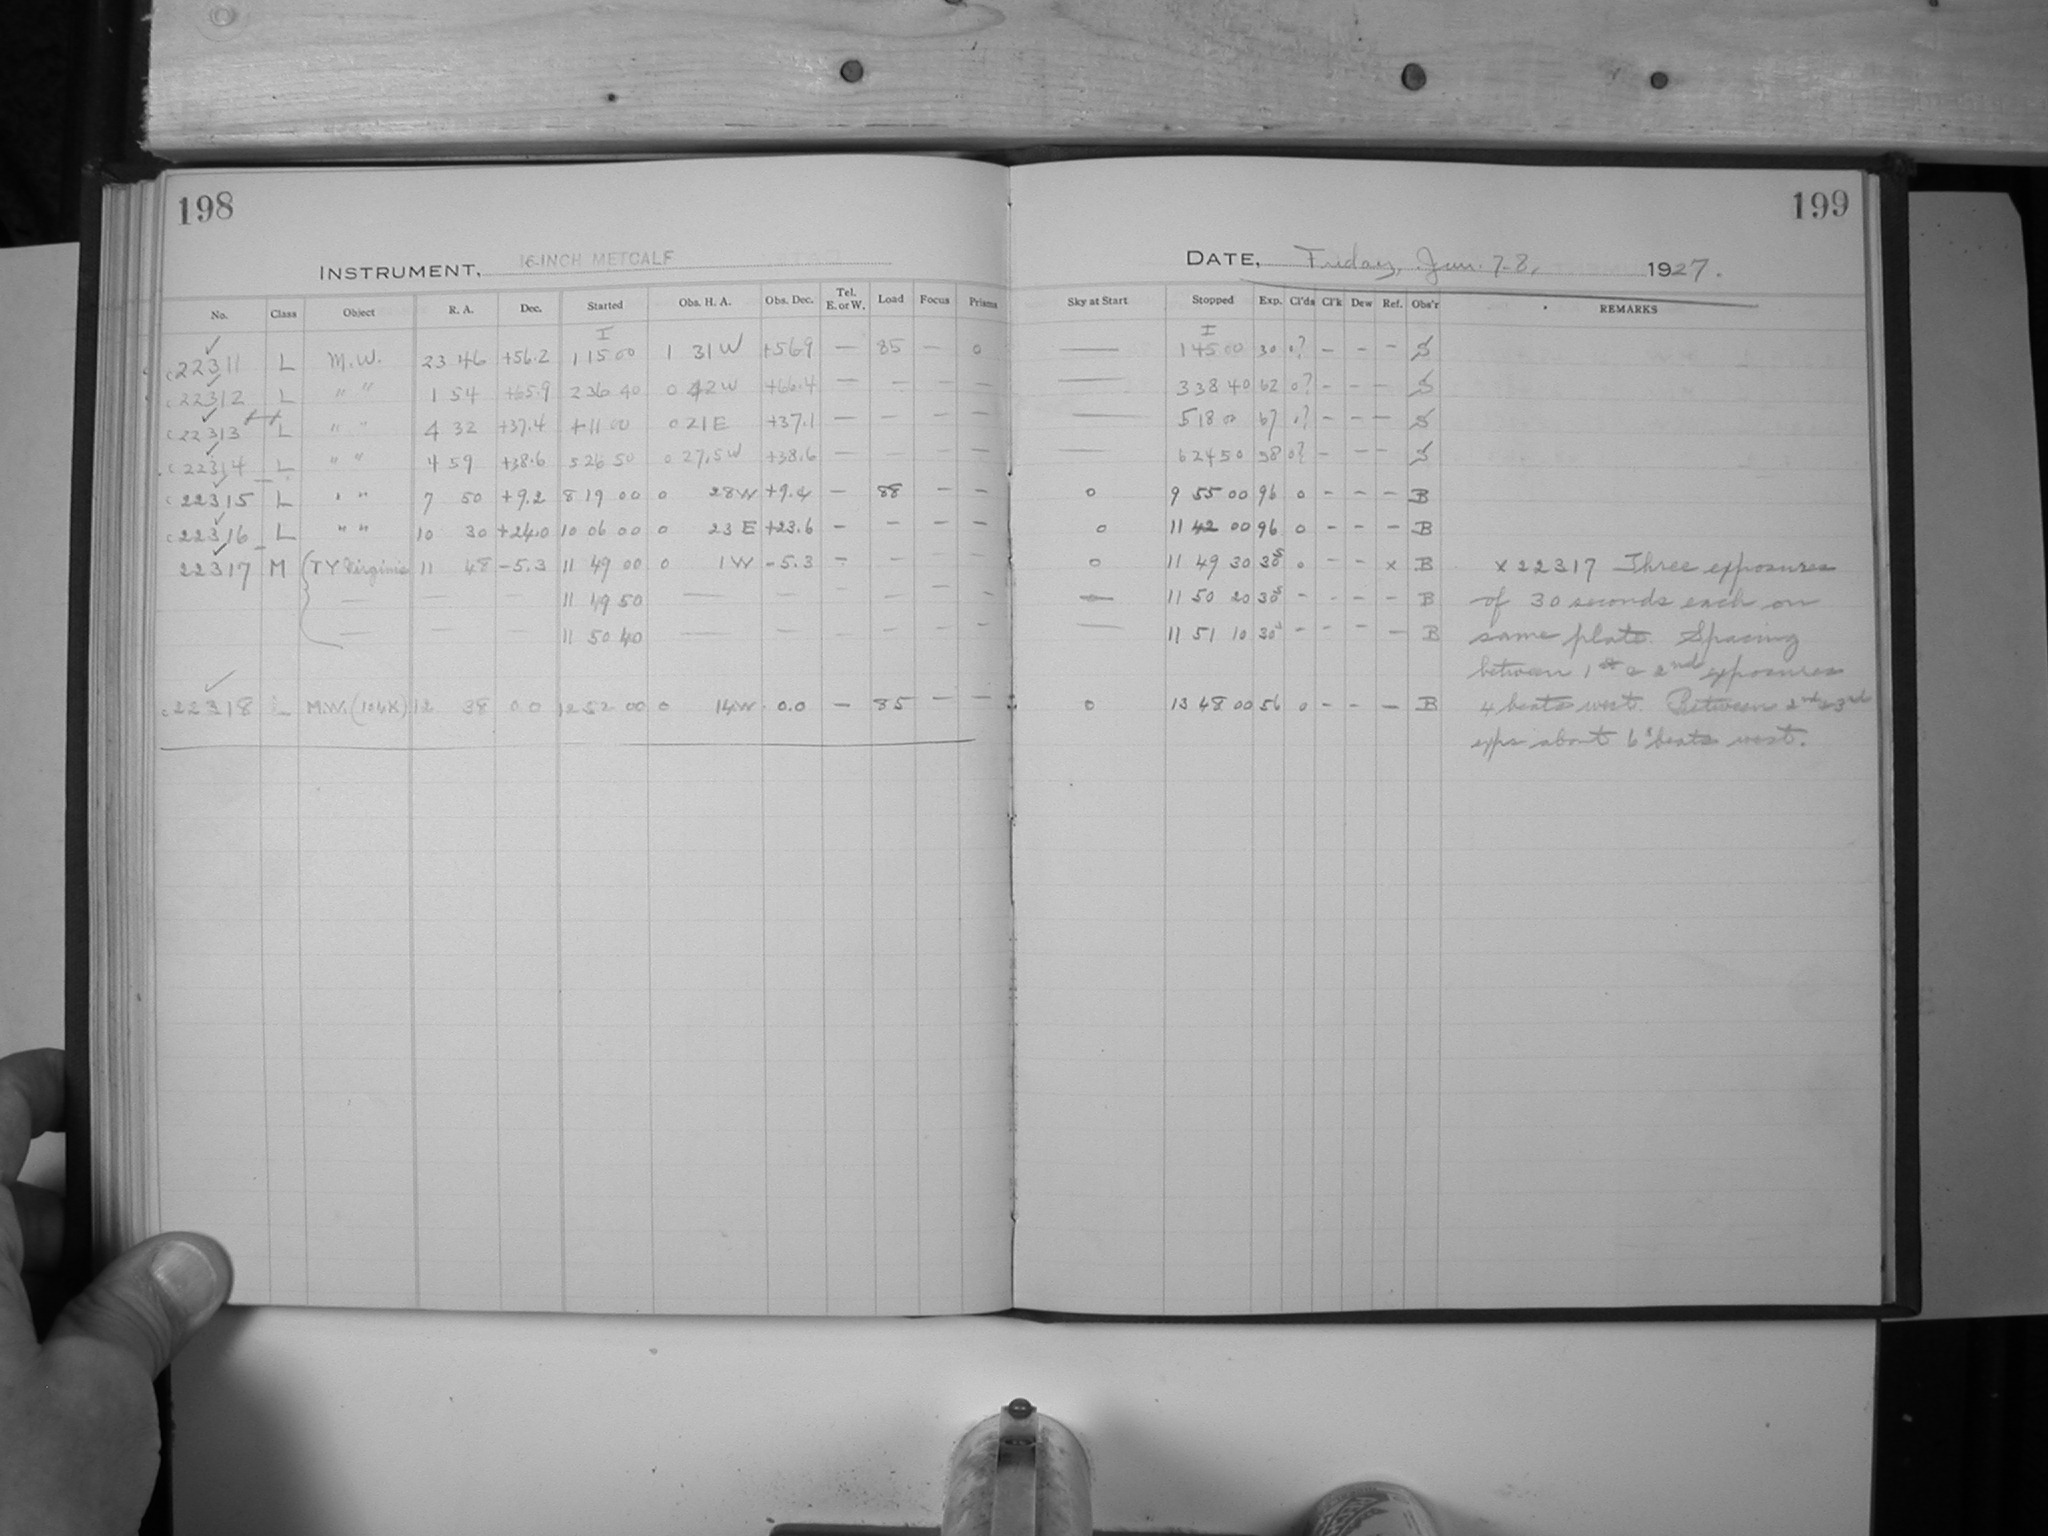 198
INSTRUMENT, 16-INCH METCALF
No. Class Object R. A. Dec. Started Obs. H. A. Obs. Dec. Tel. E. or W. Load Focus Prisms
I
c22311 L M.W. 23 46 +56.2 1 15 00 1 31 W +56.9 — 85 — o
c22312 L " " 1 54 +65.9 2 36 40 0 42 W +66.4 — — — —
c22313 L " " 4 32 +37.4 4 11 00 0 21 E +37.1 — — — —
c22314 L " " 4 59 +38.6 5 26 50 0 27.5 W +38.6 — — — —
c22315 L " " 7 50 +9.2 8 19 00 0 28 W +9.4 — 88 — —
c22316 L " " 10 30 +24.0 10 06 00 0 23 E +23.6 — — — —
22317 M TY Virginis 11 48 -5.3 11 49 00 0 1 W -5.3 — — — —
— — — 11 49 50 — — — — — —
— — — 11 50 40 — — — — — —
c22318 L M.W. (124K) 12 38 0.0 12 52 00 0 14 W 0.0 — 85 — —
199
DATE, Friday, Jan. 7-8, 1927.
Sky at Start Stopped Exp. Cl'ds Cl'k Dew Ref. Obs'r REMARKS
I
— 1 45 00 30 0? — — — S
— 3 38 40 62 0? — — — S
— 5 18 00 67 0? — — — S
— 6 24 50 58 0? — — — S
o 9 55 00 96 o — — — B
o 11 42 00 96 o — — — B
o 11 49 30 30s o — — x B x 22317 Three exposures
— 11 50 20 30s — — — — B of 30 seconds each on
— 11 51 10 30s — — — — B same plate. Spacing
between 1st & 2nd exposures
o 13 48 00 56 o — — — B 4 beats west. Between 2nd & 3rd
exps about 6 beats west.